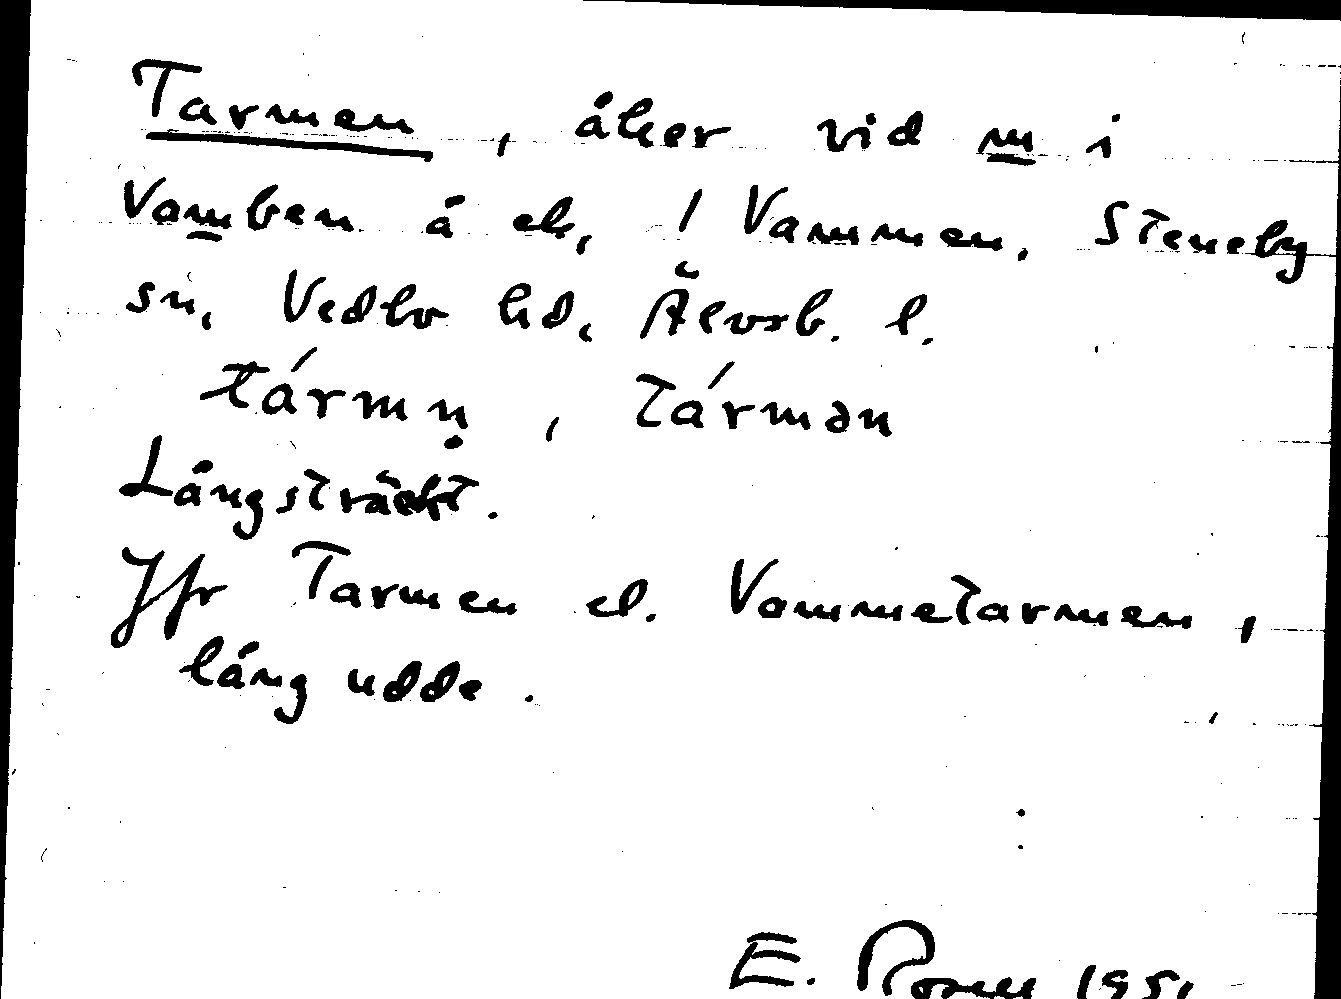 Tarmen, åker vid m i
Vamben å ek, 1 Vammen. Steneby
sn, Vedbo hd, Älvsb. l.
tármṇ, tármən
Långsträckt.
Jfr Tarmen el. Vommetarmen,
lång udde.
E. Rosell 1951